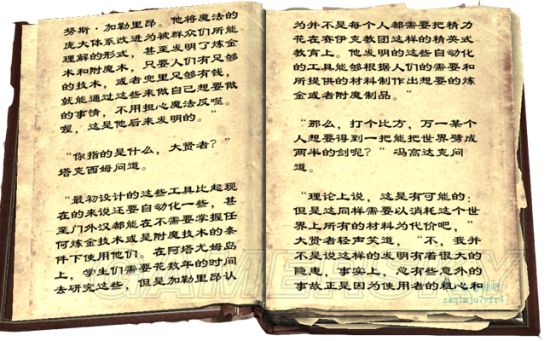 努斯·加勒里昂。他将魔法的
庞大体系改进为被群众们所能
理解的形式，甚至发明了炼金
术和附魔术，只要人们有足够
的技术，或者兜里足够有钱，
就能通过这些来做自己想要做
的事情，不用担心魔法反噬。
喔，这是他后来发明的。”
“你指的是什么，大贤者？”
塔克西姆问道。
“最初设计的这些工具比起现
在的来说还要自动化一些，甚
至门外汉都能在不需要掌握任
何炼金技术或是附魔技术的条
件下使用他们。在阿塔尤姆岛
上，学生们需要花数年的时间
去研究这些，但是加勒里昂认
为并不是每个人都需要把精力
花在赛伊克教团这样的精英式
教育上。他发明的这些自动化
的工具能够根据人们的需要和
所提供的材料制作出想要的炼
金或者附魔制品。”
“那么，打个比方，万一某个
人想要得到一把能把世界劈成
两半的剑呢？”冯高达克问
道。
“理论上说，这是有可能的；
但是这同样需要以消耗这个世
界上所有的材料为代价吧，”
大贤者轻声笑道，“不，我并
不是说这样的发明有着很大的
隐患，事实上，总有些意外的
事故正是因为使用者的粗心和
GAMERSKY
zaqimju7vfr4